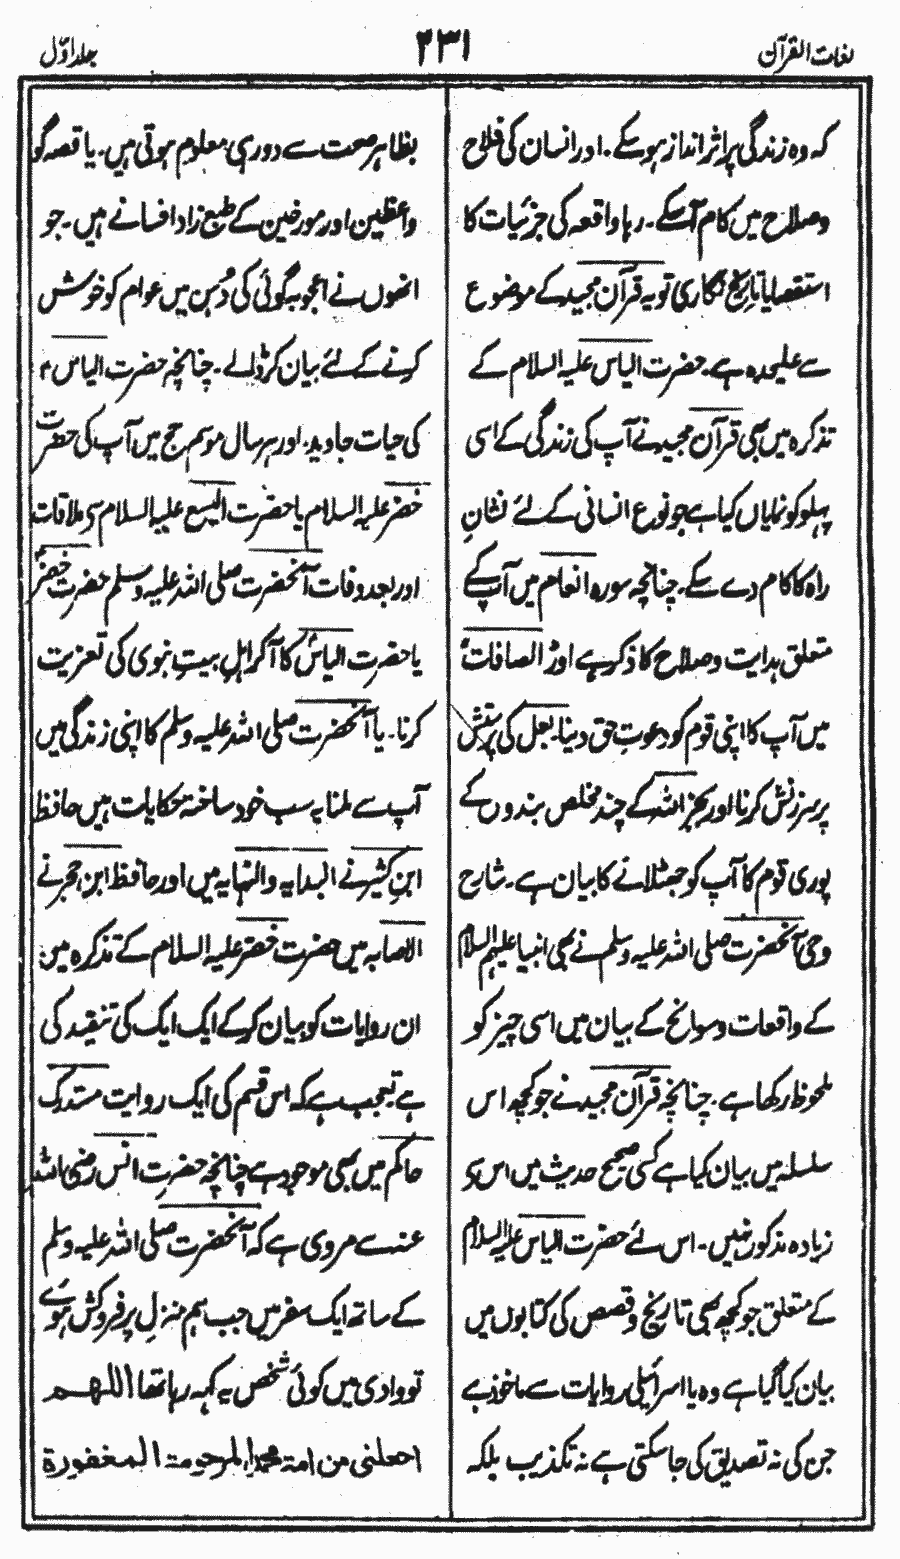 لغات القرآن
۲۳۱
جلد اوّل
کہ وہ زندگی پر اثر انداز ہو سکے۔ اور انسان کی فلاح
وصلاح میں کام آسکے۔ رہا واقعہ کی جزئیات کا
استقصا یا تاریخ نگاری تو یہ قرآن مجید کے موضوع
سے علیحدہ ہے۔ حضرت الیاس علیہ السلام کے
تذکرہ میں بھی قرآن مجید نے آپ کی زندگی کے اسی
پہلو کو نمایاں کیا ہے جو نوع انسانی کے لئے نشانِ
راہ کا کام دے سکے۔ چنانچہ سورہ انعام میں آپ کے
متعلق ہدایت وصلاح کا ذکر ہے اور الصافات
میں آپ کا اپنی قوم کو دعوتِ حق دینا۔ بعل کی پرستش
پر سرزنش کرنا اور بجز اللہ کے چند مخلص بندوں کے
پوری قوم کا آپ کو جھٹلانے کا بیان ہے۔ شارح
وحی آنحضرت صلی اللہ علیہ وسلم نے بھی انبیا علیہم السلام
کے واقعات وسوانح کے بیان میں اسی چیز کو
ملحوظ رکھا ہے۔ چنانچہ قرآن مجید نے جو کچھ اس
سلسلہ میں بیان کیا ہے کسی صحیح حدیث میں اس سے
زیادہ مذکور نہیں۔ اس لئے حضرت الیاس علیہ السلام
کے متعلق جو کچھ بھی تاریخ و قصص کی کتابوں میں
بیان کیا گیا ہے وہ یا اسرائیلی روایات سے ماخوذ ہے
جن کی نہ تصدیق کی جا سکتی ہے نہ تکذیب بلکہ
بظاہر صحت سے دوری معلوم ہوتی ہیں۔ یا قصہ گو
واعظین اور مورخین کے طبع زاد افسانے ہیں۔ جو
انھوں نے اعجوبہ گوئی کی دُھن میں عوام کو خوش
کرنے کے لئے بیان کر ڈالے۔ چنانچہ حضرت الیاس ؑ
کی حیات جاوید۔ اور ہر سال موسم حج میں آپ کی حضرت
خضر علیہ السلام یا حضرت الیسع علیہ السلام سے ملاقات
اور بعد وفات آنحضرت صلی اللہ علیہ وسلم حضرت خضر
یا حضرت الیاس کا آکر اہلِ بیتِ نبوی کی تعزیت
کرنا۔ یا آنحضرت صلی اللہ علیہ وسلم کا اپنی زندگی میں
آپ سے ملنا یہ سب خود ساختہ حکایات ہیں حافظ
ابن کثیر نے البدایہ والنہایہ میں اور حافظ ابن حجر نے
الاصابہ میں حضرت خضر علیہ السلام کے تذکرہ میں
ان روایات کو بیان کرکے ایک ایک کی تنقید کی
ہے۔ تعجب ہے کہ اس قسم کی ایک روایت مستدرک
حاکم میں بھی موجود ہے چنانچہ حضرت انس رضی اللہ
عنہ سے مروی ہے کہ آنحضرت صلی اللہ علیہ وسلم
کے ساتھ ایک سفر میں جب ہم منزل پر فروکش ہوئے
تو وادی میں کوئی شخص یہ کہہ رہا تھا اللهم
اجعلنی من امة محمد المرحومة المغفورة